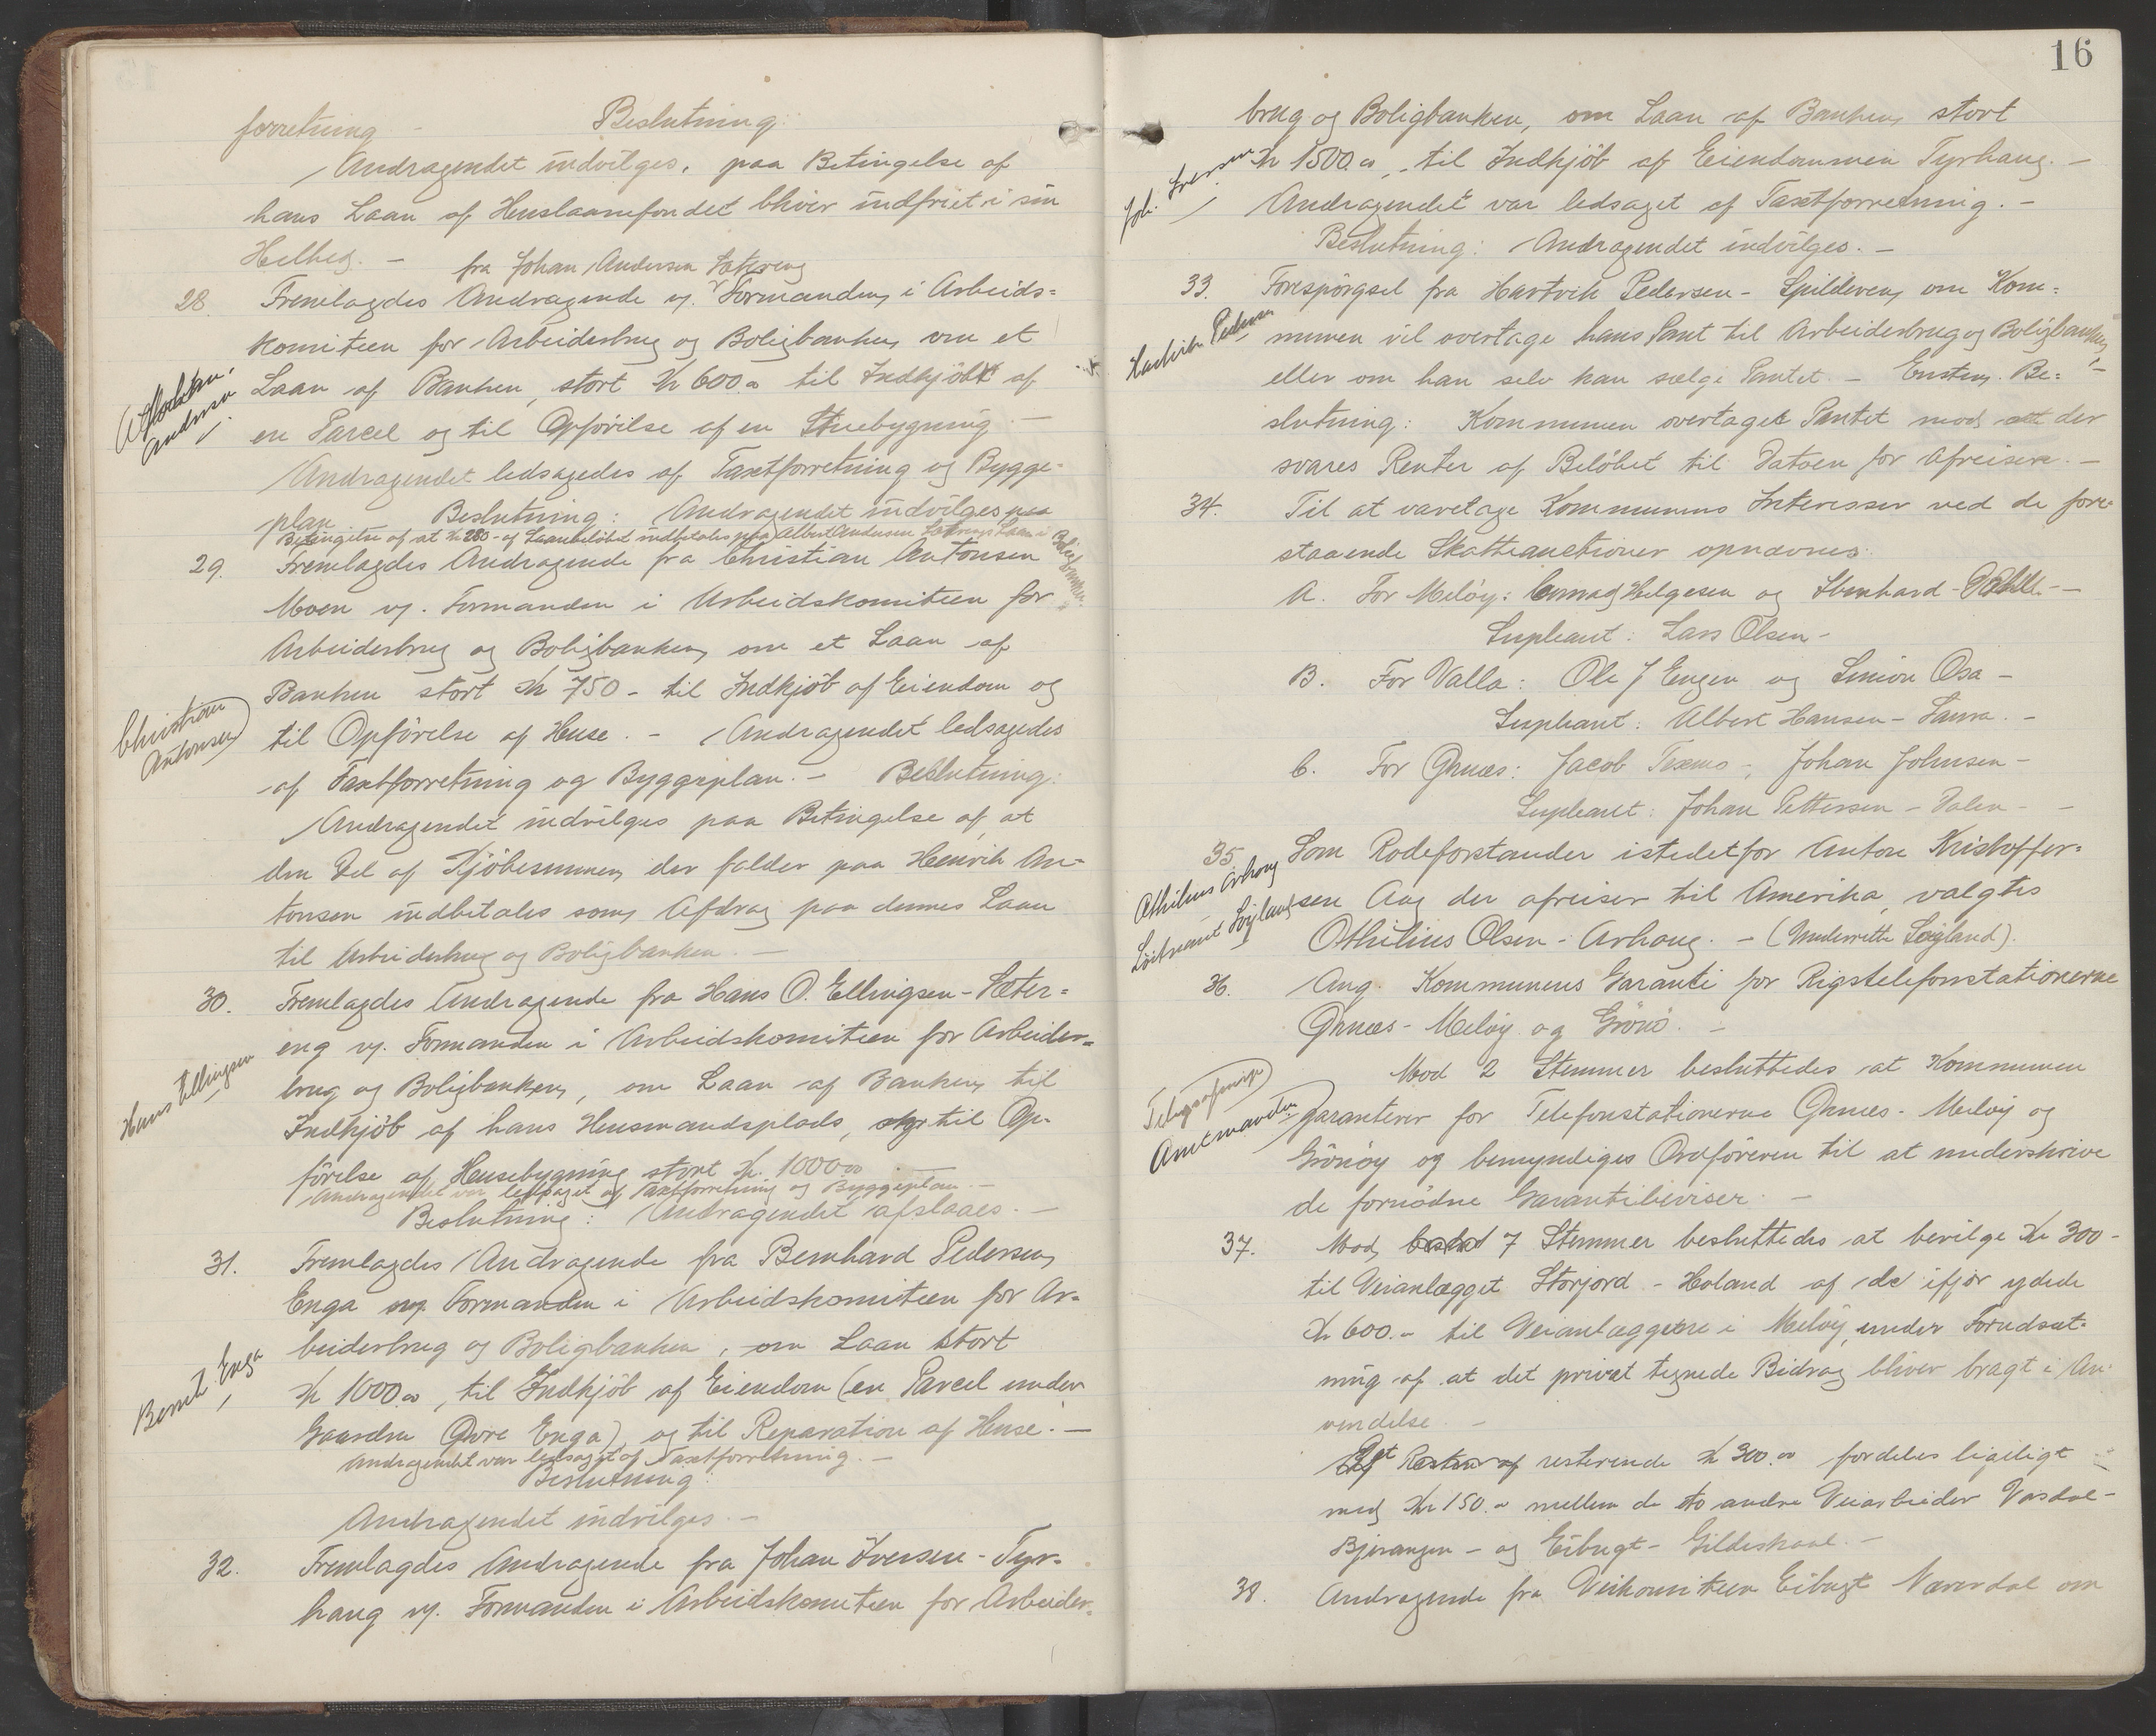 forretning - Beslutning:
Andragendet indvilges, paa Betingelse af
hans Laan af Huslaanefondet bliver indfriet i sin
Helhed. -
fra Johan Andersen Sætreng
28. Fremlagdes Andragende vj. Formanden i Arbeids=
komiteen for Arbeiderbrug og Boligbanken om et
Laan af Banken, stort Kr 600.00 til Indkjöb af
en Parcel og til Opförelse af en Stuebygning -
Andersen
Andragendet ledsagedes af Taxtforretning og Bygge-
plan Beslutning: Andragendet indvilges paa
Betingelse af at Kr 280- af Laanebelöbet indbetales paa Albert Andersen Sætrengs Laan i Boligbanken
29. Fremlagdes Andragende fra Christian Antonsen
Moen vj. Formanden i Arbeidskomiteen for
Arbeiderbrug og Boligbanken om et Laan af
Banken stort Kr 750- til Indkjöb af Eiendom og
Christian
Antonsen
til Opförelse af Huse. - Andragendet ledsagedes
af Taxtforretning og Byggeplan. - Beslutning:
Andragendet indvilges paa Betingelse af at
den Del af Kjöbesummen der falder paa Henrik An=
tonsen indbetales som Afdrag paa dennes Laan
til Arbeiderbrug og Boligbanken. -
30. Fremlagdes Andragende fra Hans O. Ellingsen - Sæter=
eng vj. Formanden i Arbeidskomiteen for Arbeider=
Hans Ellingsen
brug og Boligbanken, om Laan af Banken til
Indkjöb af hans Husmandsplads, og til Op-
förelse af Husebygning stort Kr. 1000.00
Andragendet var ledsaget af Taxtforretning og Byggeplan. -
Beslutning: Andragendet afslaaes. -
31. Fremlagdes Andragende fra Bernhard Pedersen,
Enga vj. Formanden i Arbeidskomiteen for Ar=
beiderbrug og Boligbanken, om Laan stort
Bernh. Enga
Kr 1000.00, til Indkjöb af Eiendom (en Parcel under
Gaarden Övre Enga), og til Reparation af Huse. -
Andragendet var ledsaget af Taxtforretning. -
Beslutning:
Andragendet indvilges. -
32. Fremlagdes Andragende fra Johan Iversen - Tyr=
haug vj. Formanden i Arbeidskomiteen for Arbeider=
16
brug og Boligbanken, om Laan af Banken, stort
Joh. Iversen
Kr 1500.00, til Indkjöb af Eiendommen Tyrhaug. -
Andragendet var ledsaget af Taxtforretning. -
Beslutning: Andragendet indvilges. -
33. Forespörgsel fra Hartvik Pedersen - Spilderen, om Kom=
Hartvik Pedersen
munen vil overtage hans Pant til Arbeiderbrug og Boligbanken,
eller om han selv kan sælge Pantet. - Enstem. Be=
slutning: Kommunen overtager Pantet mod at der
svares Renter af Belöbet til Datoen for Afreisen. -
34. Til at varetage Kommunens Interesser ved de fore=
staaende Skatteauctioner opnævnes:
A. For Melöy: Conrad Helgesen og Ebenhard - Dahlle -
Supleant: Lars Olsen -
B. For Valla: Ole J Engen og Simon Osa -
Supleant: Albert Hansen - Saura. -
C. For Ørnes: Jacob Texmo -, Johan Johnsen -
Supleant: Johan Pettersen - Dalen - -
35. Som Rodeforstander istedetfor Anton Kristoffer=
Othilius Arhaug
Löitnant Löjland
sen Aag der afreiser til Amerika, valgtes
Othilius Olsen - Arhaug. - (Underrette Löigland).
36. Ang. Kommunens Garanti for Rigstelefonstationerne
Ørnes - Melöy og Grönö. -
Mod 2 Stemmer besluttedes at Kommunen
Amtmanden
garanterer for Telefonstationerne Ørnes - Melöy og
Grönöy og bemyndiges Ordföreren til at underskrive
de fornödne Garantibeviser. -
37. Mod 7 Stemmer besluttedes at bevilge Kr 300-
til Veianlægget Storjord - Holand af de ifjor ydede
Kr 600.- til Veianlæggene i Melöy, under Forudsæt=
ning af at det privat tegnede Bidrag bliver bragt i An-
vendelse. -
resterende Kr 300.00 fordeles ligeligt
med Kr 150.- mellem de to andre Veiarbeider Vasdal-
Bjerangen - og Eibugt - Gildeskaal. -
38. Andragende fra Veikomiteen Eibugt Neverdal om